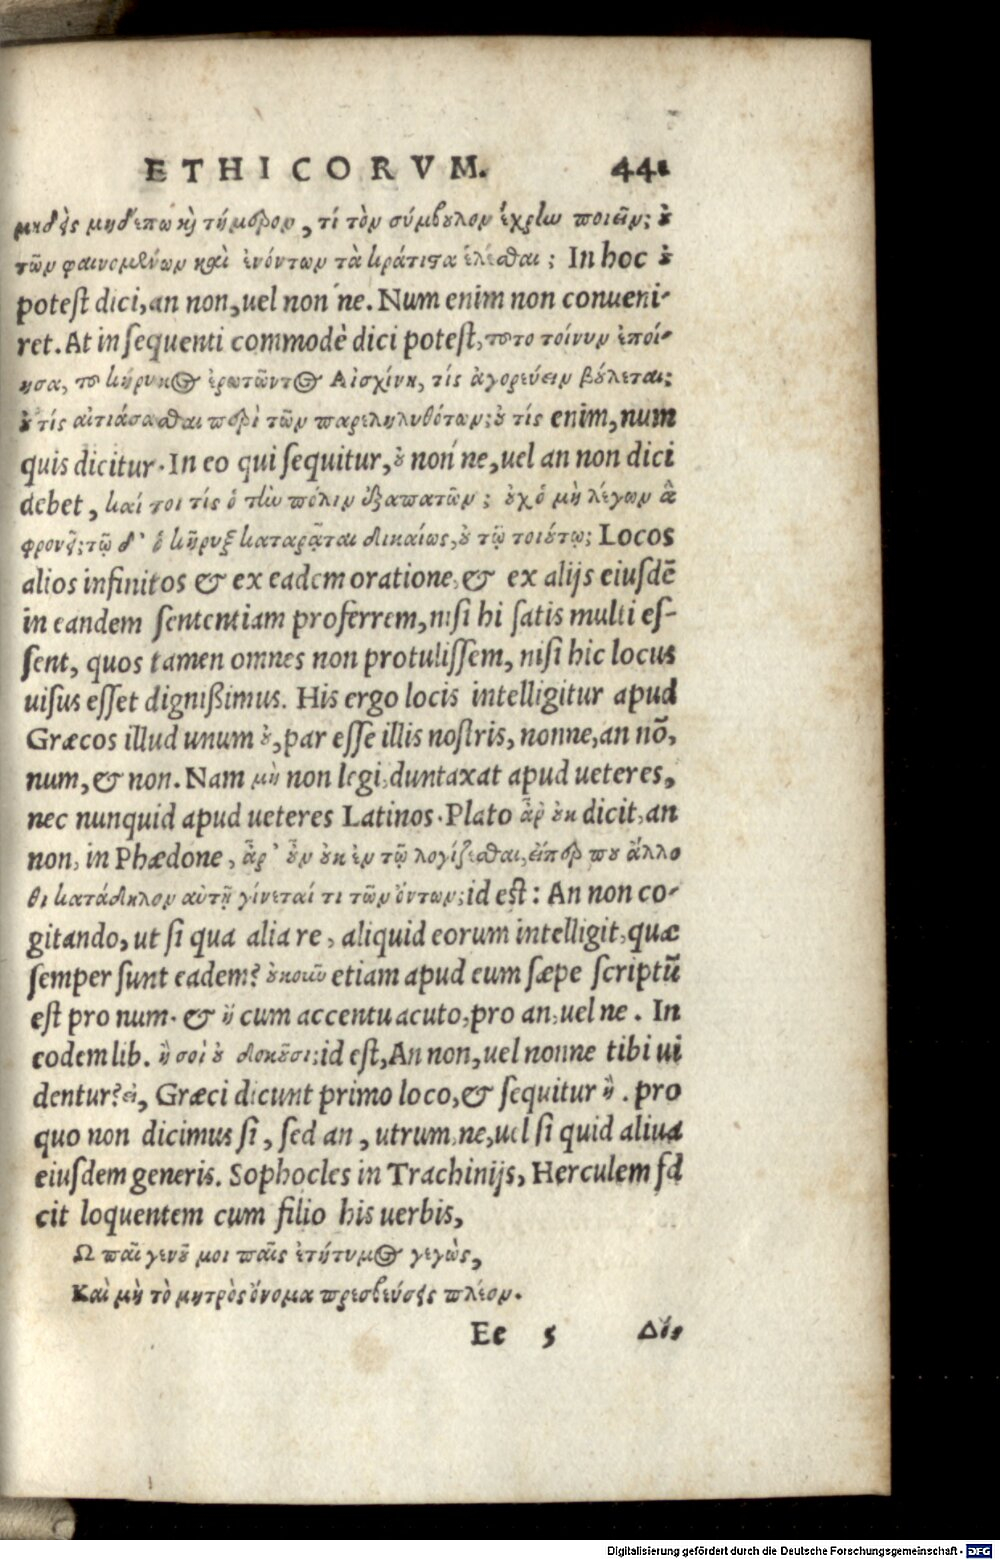 ETHICORVM. 441
μηδεὶς μηδέπω καὶ τήμερον, τί τὸν σύμβουλον ἐχρῆν ποιεῖν; οὐ
τῶν φαινομένων καὶ ἐνόντων τὰ κράτιστα ἑλέσθαι; In hoc οὐ
potest dici, an non, uel non ne. Num enim non conueni-
ret. At in sequenti commodè dici potest, τοῦτο τοίνυν ἐποί-
ησα, τοῦ κήρυκος ἐρωτῶντος Αἰσχίνη, τίς ἀγορεύειν βούλεται;
οὐ τίς αἰτιάσασθαι περὶ τῶν παρεληλυθότων; οὐ τίς enim, num
quis dicitur. In eo qui sequitur, οὐ non ne, uel an non dici
debet, καί τοι τίς ὁ τὴν πόλιν ἐξαπατῶν; οὐχ ὁ μὴ λέγων ἃ
φρονεῖ; τῷ δ' ὁ κῆρυξ καταρᾶται δικαίως, οὐ τῷ τοιούτῳ; Locos
alios infinitos & ex eadem oratione, & ex alijs eiusdē
in eandem sententiam proferrem, nisi hi satis multi es-
sent, quos tamen omnes non protulissem, nisi hic locus
uisus esset dignißimus. His ergo locis intelligitur apud
Græcos illud unum οὐ, par esse illis nostris, nonne, an nō,
num, & non. Nam μὴ non legi duntaxat apud ueteres,
nec nunquid apud ueteres Latinos. Plato ἆρ' οὐκ dicit, an
non, in Phædone, ἆρ' οὖν οὐκ ἐν τῷ λογίζεσθαι, εἴπερ που ἄλλο
θι κατάδηλον αὐτῇ γίνεταί τι τῶν ὄντων; id est: An non co-
gitando, ut si qua alia re, aliquid eorum intelligit, quæ
semper sunt eadem? οὐκοῦν etiam apud eum sæpe scriptū
est pro num. & ἤ cum accentu acuto, pro an, uel ne. In
eodem lib. ἤ σοὶ οὐ δοκοῦσι; id est, An non, uel nonne tibi ui
dentur? εἰ, Græci dicunt primo loco, & sequitur ἢ. pro
quo non dicimus si, sed an, utrum, ne, uel si quid aliud
eiusdem generis. Sophocles in Trachinijs, Herculem fa
cit loquentem cum filio his uerbis,
Ω παῖ γενοῦ μοι παῖς ἐτήτυμος γεγὼς,
Καὶ μὴ τὸ μητρὸς ὄνομα πρεσβεύσῃς πλέον.
Ee 5 Δός
Digitalisierung gefördert durch die Deutsche Forschungsgemeinschaft - DFG